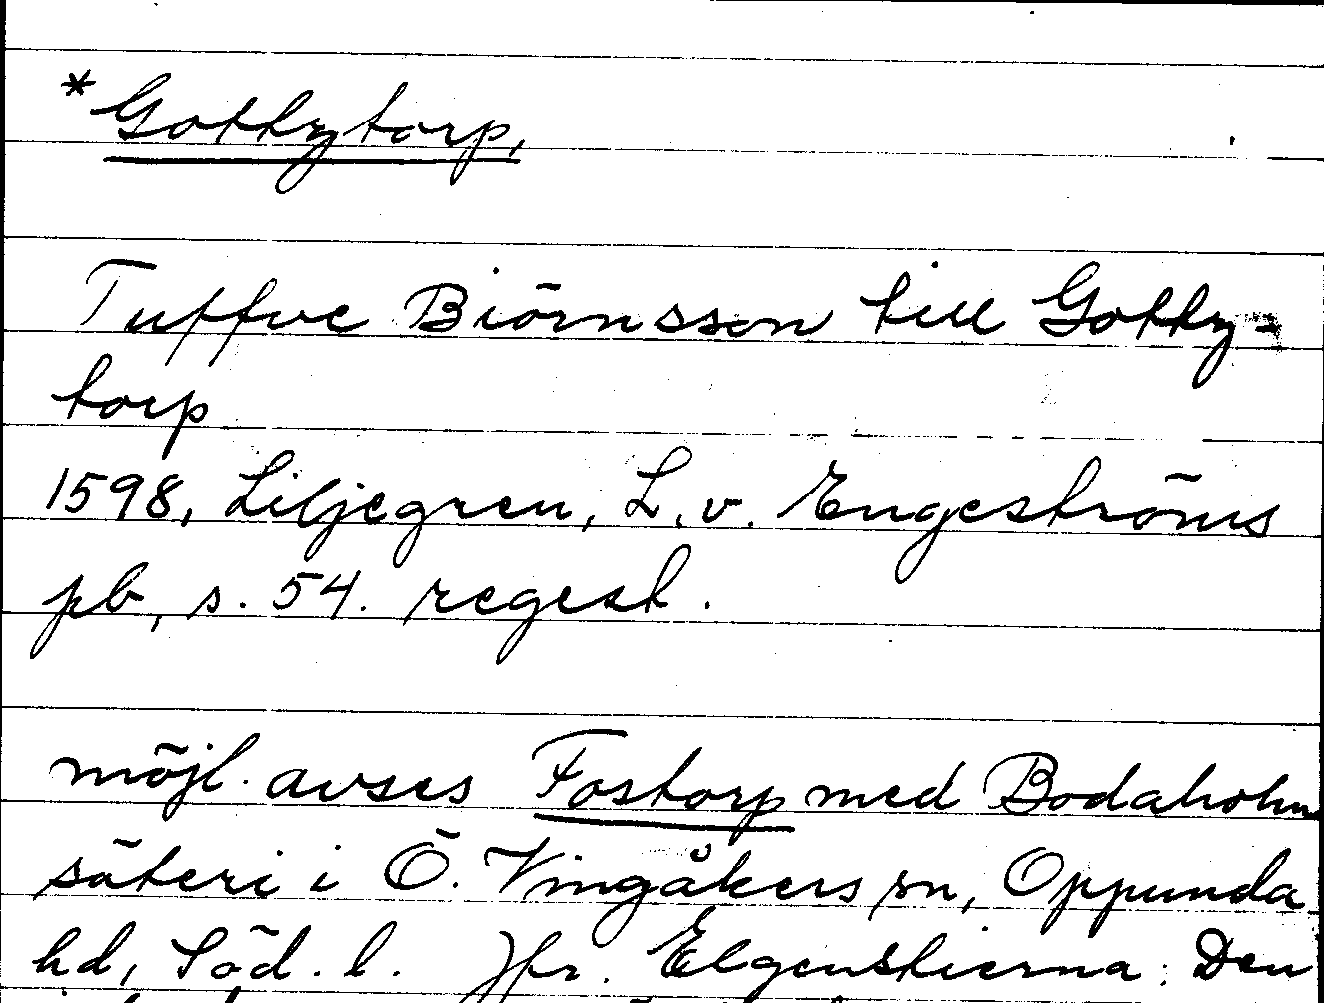 *Gottztorp,
Tuffve Biörnsson till Gottz-
torp
1598, Liljegren, L. v. Engeströms
pb, s. 54. regest.
möjl. avses Fostorp med Bodaholm
säteri i Ö. Vingåkers sn, Oppunda
hd, Söd. l. Jfr. Elgenstierna: Den